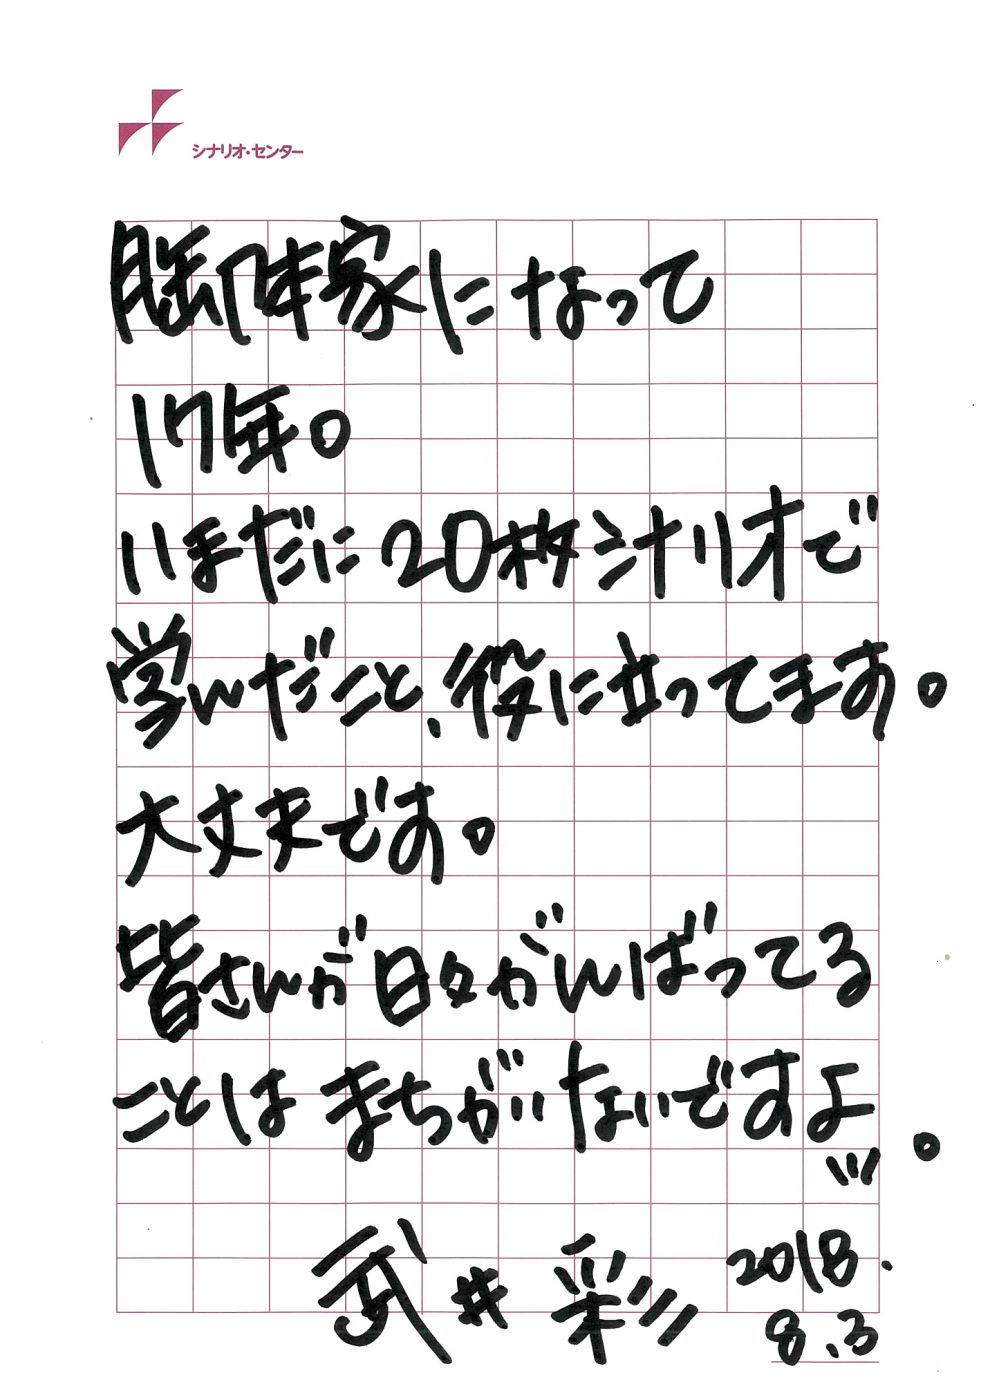 シナリオ・センター
脚本家になって
17年。
いまだに20枚シナリオで
学んだこと、役に立ってます。
大丈夫です。
皆さんが日々がんばってる
ことはまちがいないですよ。
武井 彩 2018.
8.3